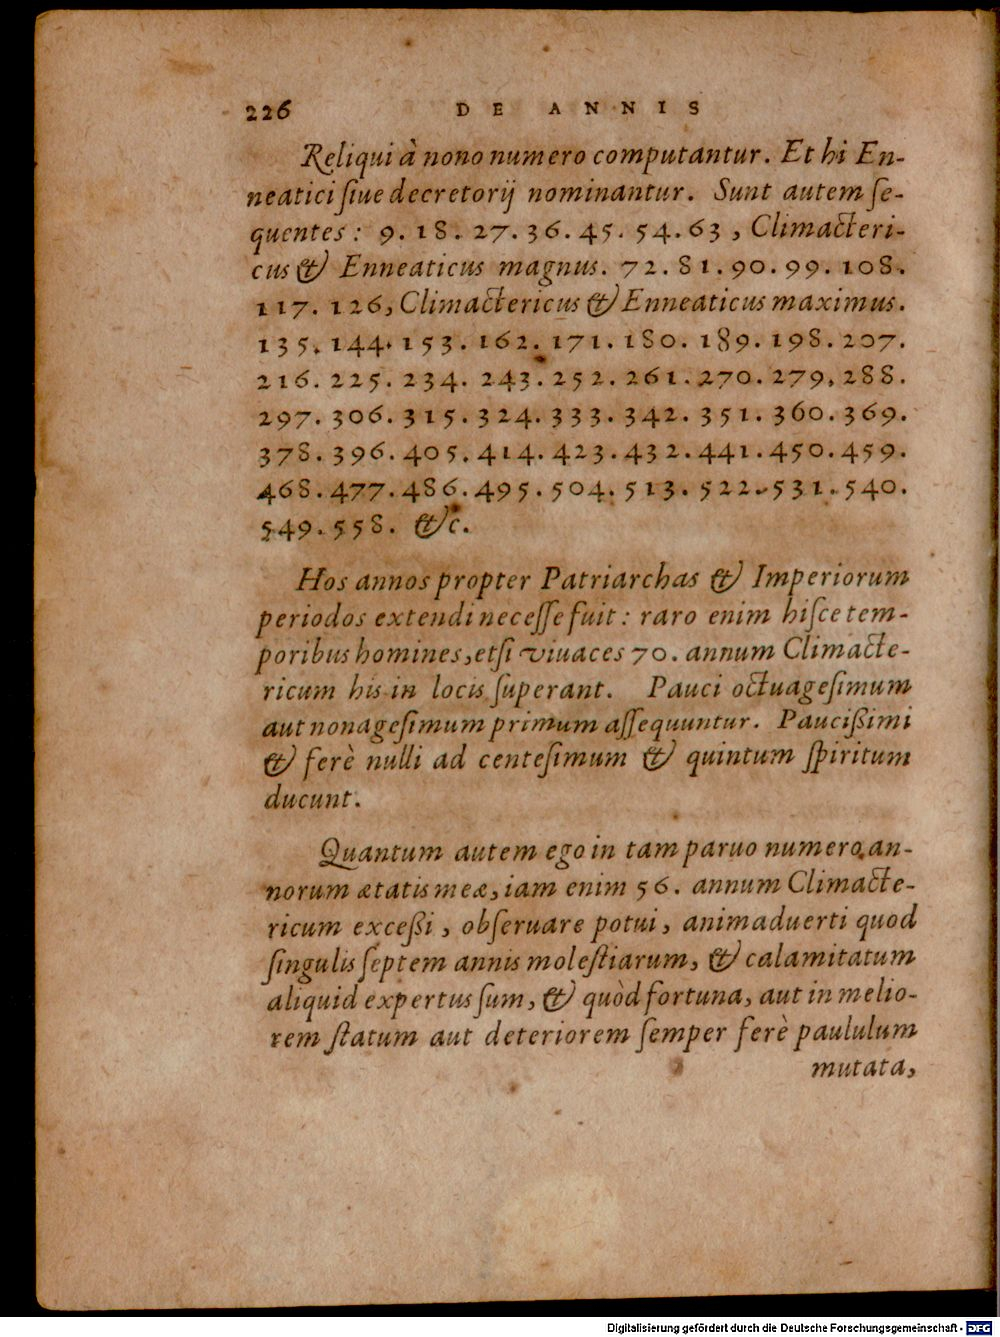 226 DE ANNIS
Reliqui à nono numero computantur. Et hi En-
neatici ſiue decretorij nominantur. Sunt autem ſe-
quentes: 9. 18. 27. 36. 45. 54. 63, Climacteri-
cus & Enneaticus magnus. 72. 81. 90. 99. 108.
117. 126, Climactericus & Enneaticus maximus.
135. 144. 153. 162. 171. 180. 189. 198. 207.
216. 225. 234. 243. 252. 261. 270. 279. 288.
297. 306. 315. 324. 333. 342. 351. 360. 369.
378. 396. 405. 414. 423. 432. 441. 450. 459.
468. 477. 486. 495. 504. 513. 522. 531. 540.
549. 558. &c.
Hos annos propter Patriarchas & Imperiorum
periodos extendi neceſſe fuit: raro enim hiſce tem-
poribus homines, etſi viuaces 70. annum Climacte-
ricum his in locis ſuperant. Pauci octuageſimum
aut nonageſimum primum aſſequuntur. Paucißimi
& ferè nulli ad centeſimum & quintum ſpiritum
ducunt.
Quantum autem ego in tam paruo numero an-
norum ætatis meæ, iam enim 56. annum Climacte-
ricum exceßi, obſeruare potui, animaduerti quod
ſingulis ſeptem annis moleſtiarum, & calamitatum
aliquid expertus ſum, & quòd fortuna, aut in melio-
rem ſtatum aut deteriorem ſemper ferè paululum
mutata,
Digitalisierung gefördert durch die Deutsche Forschungsgemeinschaft - DFG